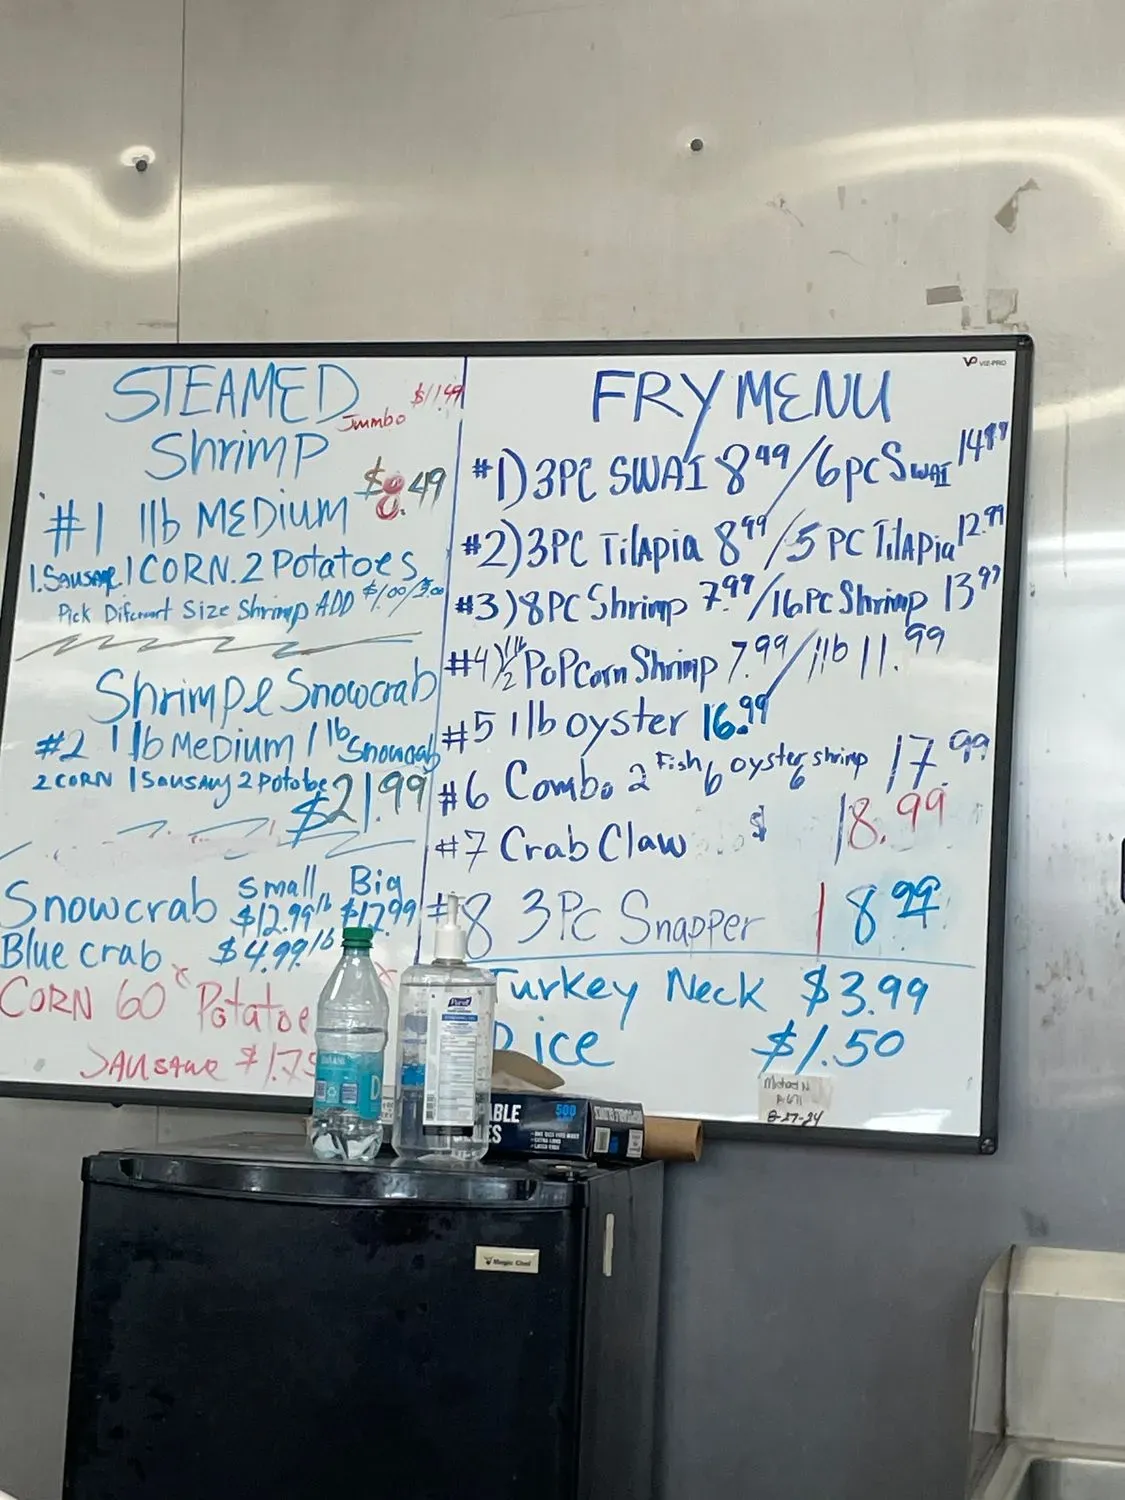 STEAMED
Jumbo $11.49
Shrimp
#1 1lb MEDIUM $8.49
1.SAUSAGE.1 CORN.2 Potatoes
Pick Different Size Shrimp ADD $1.00/3.00
Shrimp & Snowcrab
#2 1 lb MeDium 1 lb Snowcrab
2 CORN 1 Sausauy 2 Potatoe
$21.99
Small Big
Snowcrab $12.99 lb $17.99
Blue crab $4.99 lb
CORN 60¢ Potatoe
SAUSAGE $1.75
VIZ-PRO
FRY MENU
#1) 3PC SWAI 8 49 / 6 pc SWAI 14 99
#2) 3PC TilApia 8 99 / 5 PC TilApia 12.99
#3) 8PC Shrimp 7.99 / 16 PC Shrimp 13 99
#4) 1/2 lb PoPCorn Shrimp 7.99 / 1lb 11.99
#5 1 lb oyster 16.99
#6 Combo 2 Fish 6 oyster 6 shrimp 17.99
#7 Crab Claw $ 18.99
#8 3 Pc Snapper 18 99
Turkey Neck $3.99
Rice $1.50
Michael N
8-27-24
Purell
ABLE
500
Magic Chef